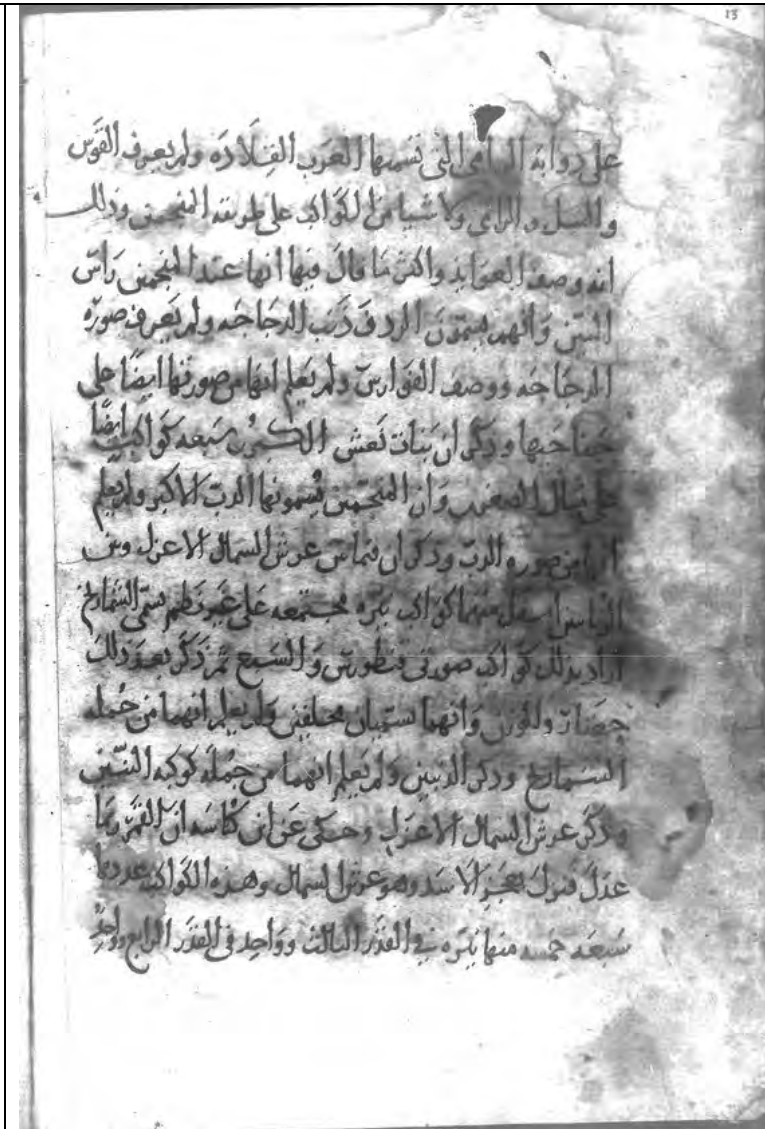 13
على ذوابة الرامي التى تسميها العرب القلادة ولم يعرف القوس
والسهل والرامى ولا شيا من الكواكب على طريقة المنجمين وذلك
انه وصف العوايذ واكثر ما قال فيها انها عند المنجمين راس
التنين وانهم يسمون الردف ذنب الدجاجه ولم يعرف صوره
الدجاجه ووصف الفوارس ولم يعلم انها من صورتها ايضًا على
جناحيها وذكر ان بنات نعش الكبرى سبعه كواكب ايضًا
على مثال الصغرى وان المنجمين يسمونها الدب الاكبر ولم يعلم
انها من صوره الدب وذكر ان فيما بين عرش السماك الاعزل وبين
اسفل منهما كواكب نيره مجتمعه على غير نظم تسمى الشماريخ
اراد بذلك كواكب صورتى قنطورس والسبع ثم ذكر بعد ذلك
حضار والوزن وانهما تسميان محلفين ولم يعلم انهما من جمله
الشماريخ وذكر الذيبين ولم يعلم انهما من جملة كوكبه التنين
وذكر عرش السماك الاعزل وحكى عن ابن كناسه ان القمر ربما
عدل فنزل بعجز الاسد وهو عرش السماك وهذه الكواكب عددها
سبعه خمسه منها نيره فى القدر الثالث وواحد فى القدر الرابع وواحد